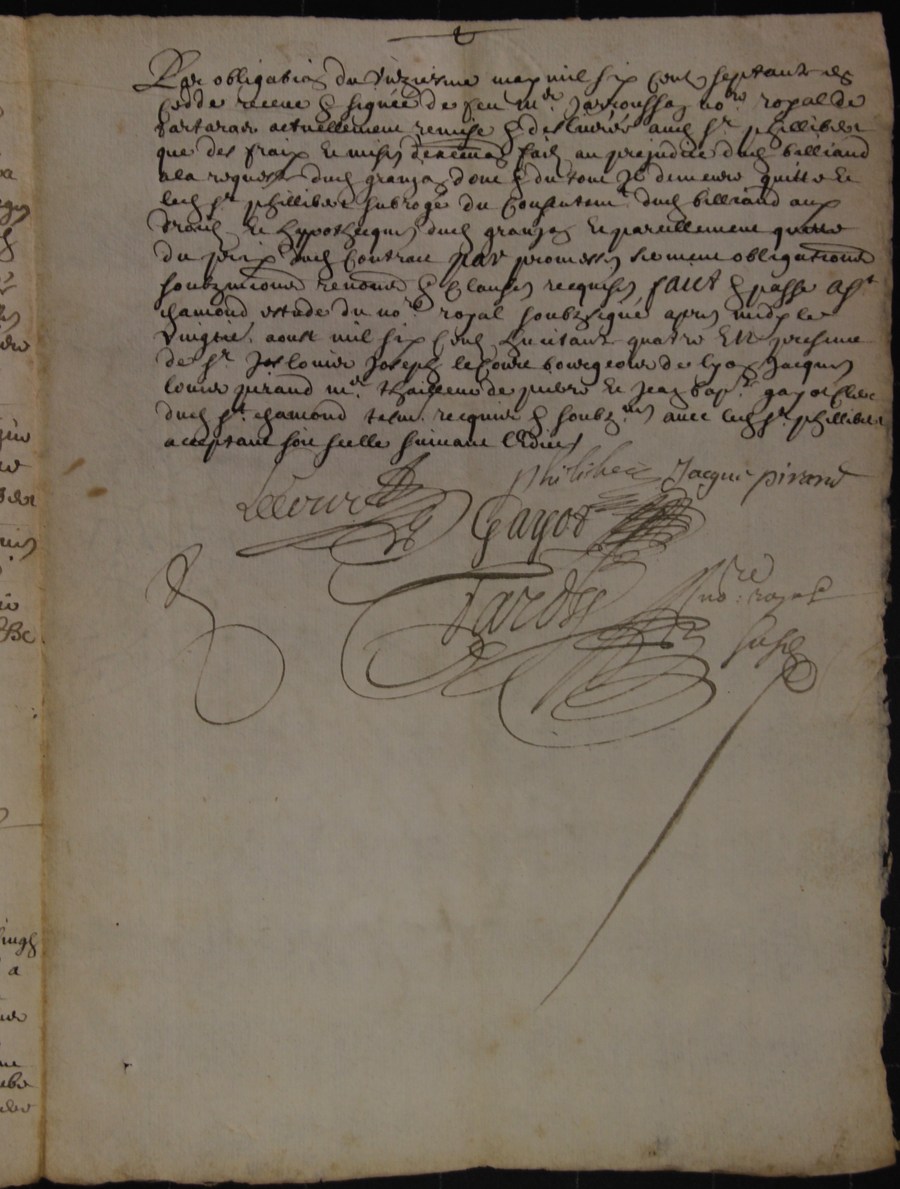 Par obligation du unziesme may mil six cent septante
cedde receue & signée de feu me Jarroussa nore royal de
tartaras actuellement remise & deslivrée aud sr phillibert
que des fraix et mises de faits au prejudice dud billiand
a la requeste dud granja dont & du tout Il demeure quitte et
led sr phillibert subrogé du consentemt dud billiand aux
droits et hypotheques dud granja et pareillement quitte
du prix dud contract par promesses serment obligations
soubzmissions renons & clauses requises fait & passé a st
chamond estude du nore royal soubzsigné apres midy le
vingtie aoust mil six cent huitante quatre en presence
de sr louis Joseph lecourt bourgeois de lyon Jacques
louis pirand me tailleur de pierre et Jean bapt gayot clerc
dud st chamond tesm requis & soubznes avec led sr phillibert
acceptant soit scellé suivant l'edit
philibert Jacque pirand
Lecourt Gayot
Tardy nore royal